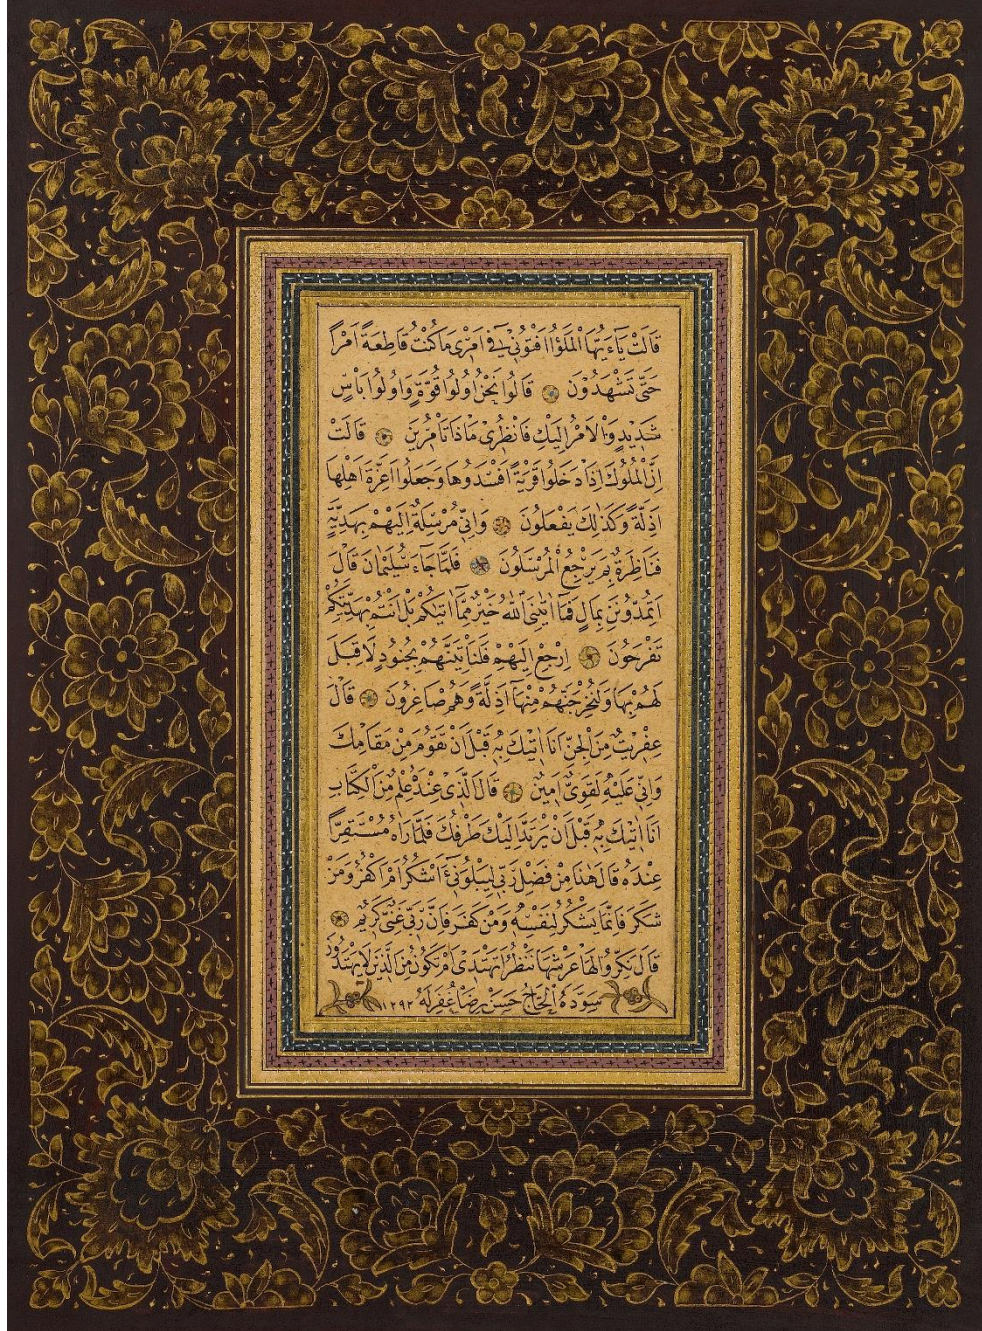 قَالَتْ يَاءَيُّهَا الْمَلَؤُا اَفْتُونِي فِي اَمْرِي مَا كُنْتُ قَاطِعَةً اَمْرًا
حَتّٰى تَشْهَدُونِ ۞ قَالُوا نَحْنُ اُولُوا قُوَّةٍ وَاُولُوا بَاْسٍ
شَدِيدٍ وَالْاَمْرُ اِلَيْكِ فَانْظُرِي مَاذَا تَاْمُرِينَ ۞ قَالَتْ
اِنَّ الْمُلُوكَ اِذَا دَخَلُوا قَرْيَةً اَفْسَدُوهَا وَجَعَلُوا اَعِزَّةَ اَهْلِهَا
اَذِلَّةً وَكَذٰلِكَ يَفْعَلُونَ ۞ وَاِنِّي مُرْسِلَةٌ اِلَيْهِمْ بِهَدِيَّةٍ
فَنَاظِرَةٌ بِمَ يَرْجِعُ الْمُرْسَلُونَ ۞ فَلَمَّا جَاءَ سُلَيْمٰانَ قَالَ
اَتُمِدُّونَنِ بِمَالٍ فَمَا اٰتٰينِيَ اللّٰهُ خَيْرٌ مِمَّا اٰتٰيكُمْ بَلْ اَنْتُمْ بِهَدِيَّتِكُمْ
تَفْرَحُونَ ۞ اِرْجِعْ اِلَيْهِمْ فَلَنَاْتِيَنَّهُمْ بِجُنُودٍ لَا قِبَلَ
لَهُمْ بِهَا وَلَنُخْرِجَنَّهُمْ مِنْهَا اَذِلَّةً وَهُمْ صَاغِرُونَ ۞ قَالَ
عِفْرِيتٌ مِنَ الْجِنِّ اَنَا اٰتِيكَ بِهِ قَبْلَ اَنْ تَقُومَ مِنْ مَقَامِكَ
وَاِنِّي عَلَيْهِ لَقَوِيٌّ اَمِينٌ ۞ قَالَ الَّذِي عِنْدَهُ عِلْمٌ مِنَ الْكِتَابِ
اَنَا اٰتِيكَ بِهِ قَبْلَ اَنْ يَرْتَدَّ اِلَيْكَ طَرْفُكَ فَلَمَّا رَاٰهُ مُسْتَقِرًّا
عِنْدَهُ قَالَ هٰذَا مِنْ فَضْلِ رَبِّي لِيَبْلُوَنِي ءَاَشْكُرُ اَمْ اَكْفُرُ وَمَنْ
شَكَرَ فَاِنَّمَا يَشْكُرُ لِنَفْسِهِ وَمَنْ كَفَرَ فَاِنَّ رَبِّي غَنِيٌّ كَرِيمٌ ۞
قَالَ نَكِّرُوا لَهَا عَرْشَهَا نَنْظُرْ اَتَهْتَدِي اَمْ تَكُونُ مِنَ الَّذِينَ لَا يَهْتَدُونَ
سَوَّدَهُ الْحَاجُّ حَسَنْ رِضَا غُفِرَلَهُ ١٢٩٢